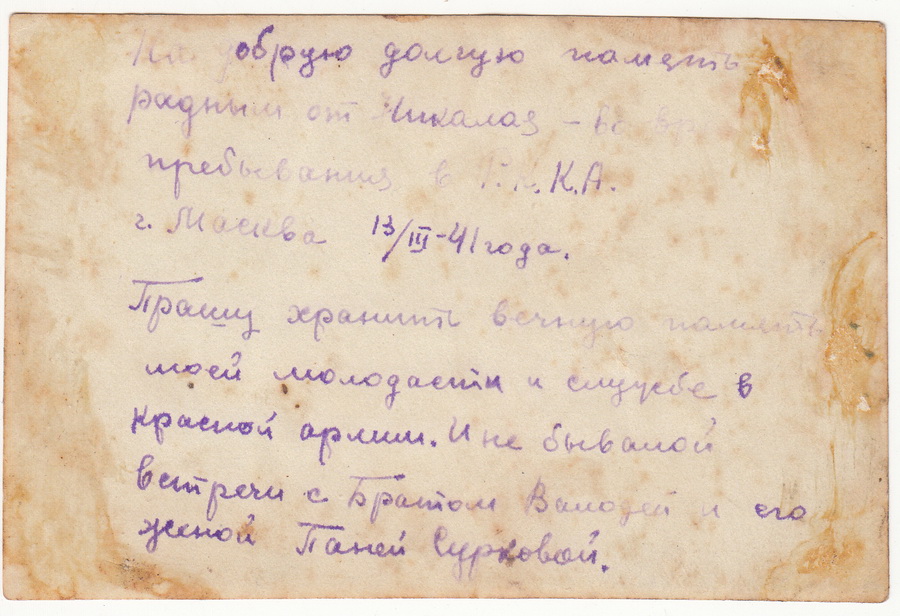 На добрую долгую память
радным от Николая – Во вр
пребывания в Р.К.К.А.
г. Масква 13/III-41 года.
Прашу хранить вечную память
моей молодасти и службе в
красной армии. И не бывалой
встречи с Братом Валодей и его
женой Паней Сурковой.